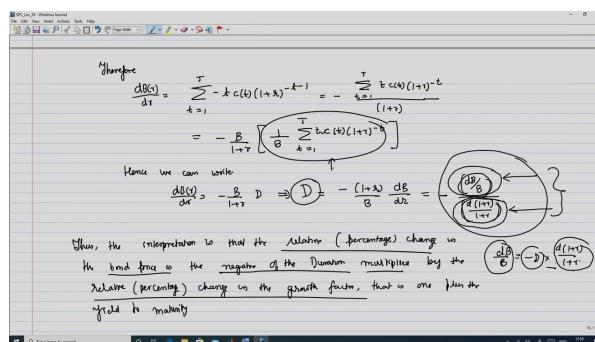 SPC_Lec_29 - Windows Journal
File Edit View Insert Actions Tools Help
Page Width
Therefore
dB(r)/dr = Σ_{t=1}^{T} -t c(t) (1+r)^{-t-1} = - Σ_{t=1}^{T} t c(t) (1+r)^{-t} / (1+r)
= - B/(1+r) [ 1/B Σ_{t=1}^{T} t.c(t) (1+r)^{-t} ]
Hence we can write
dB(r)/dr = - B/(1+r) D ⇒ D = - (1+r)/B dB/dr = - (dB/B) / (d(1+r)/(1+r))
Thus, the interpretation is that the relative (percentage) change in
the bond price is the negative of the Duration multiplied by the
dB/B = -D × d(1+r)/(1+r)
relative (percentage) change in the growth factor, that is one plus the
yield to maturity
Type here to search